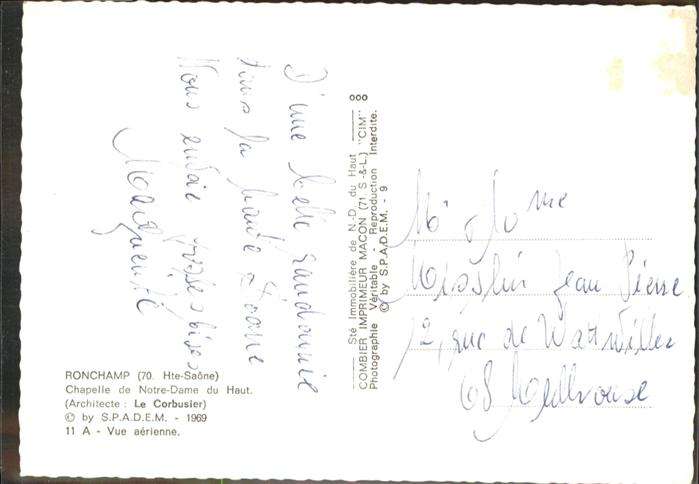 D'une belle randonnée
dans la haute Saône
Nous envoie grosses bises
Marguerite
RONCHAMP (70. Hte-Saône)
Chapelle de Notre-Dame du Haut.
(Architecte : Le Corbusier)
© by S.P.A.D.E.M. - 1969
11 A - Vue aérienne.
ooo
Sté Immobilière de N.-D. du Haut
COMBIER IMPRIMEUR MACON (71 S.-&-L.) "CIM"
Photographie Véritable - Reproduction Interdite.
© by S.P.A.D.E.M. - 9
Mr Mme
Jean Pierre
2, rue de Wattwiller
68 Mulhouse